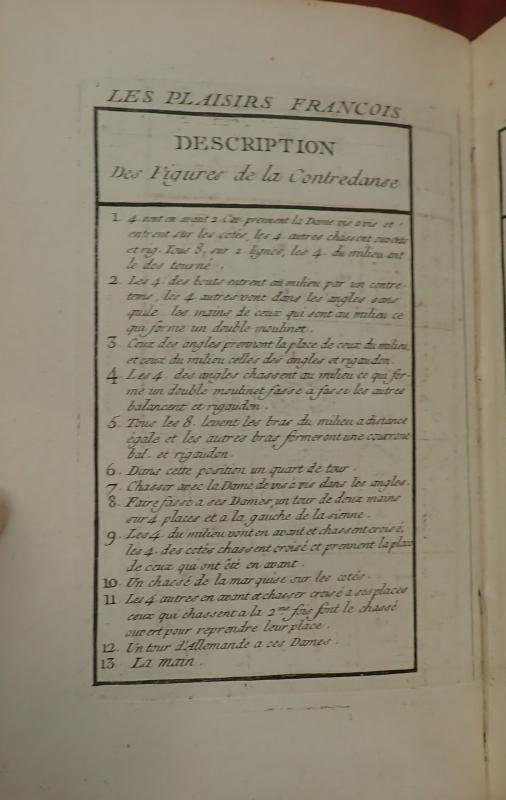 LES PLAISIRS FRANCOIS
DESCRIPTION
Des Figures de la Contredanse
1. 4. vont en avant 2. Cav. prennent la Dame vis a vis et
entrent sur les cotés, les 4. autres chassent ouverts
et rig. Tous 8. sur 2 lignes, les 4. du milieu ont
le dos tourné.
2. Les 4. des bouts entrent au milieu par un contre-
tems, les 4 autres vont dans les angles sans
quite les mains de ceux qui sont au milieu ce
qui forme un double moulinet.
3. Ceux des angles prennent la place de ceux du milieu,
et ceux du milieu celles des angles et rigaudon.
4. Les 4. des angles chassent au milieu ce qui for-
me un double moulinet fasse à fasse les autres
balancent et rigaudon.
5. Tous les 8. levent les bras du milieu a distance
égale et les autres bras formeront une couronne
bal. et rigaudon.
6. Dans cette position un quart de tour.
7. Chasser avec la Dame de vis à vis dans les angles.
8. Faire fasse a ses Dames, un tour de deux mains
sur 4. places et a la gauche de la sienne.
9. Les 4. du milieu vont en avant et chassent croisé,
les 4. des cotés chassent croisé et prennent la place
de ceux qui ont été en avant.
10. Un chassé de la marquise sur les cotés.
11. Les 4 autres en avant et chasser croisé a ses places
ceux qui chassent a la 2me fois font le chassé
ouvert pour reprendre leur place.
12. Un tour d'Allemande a ces Dames.
13. La main.